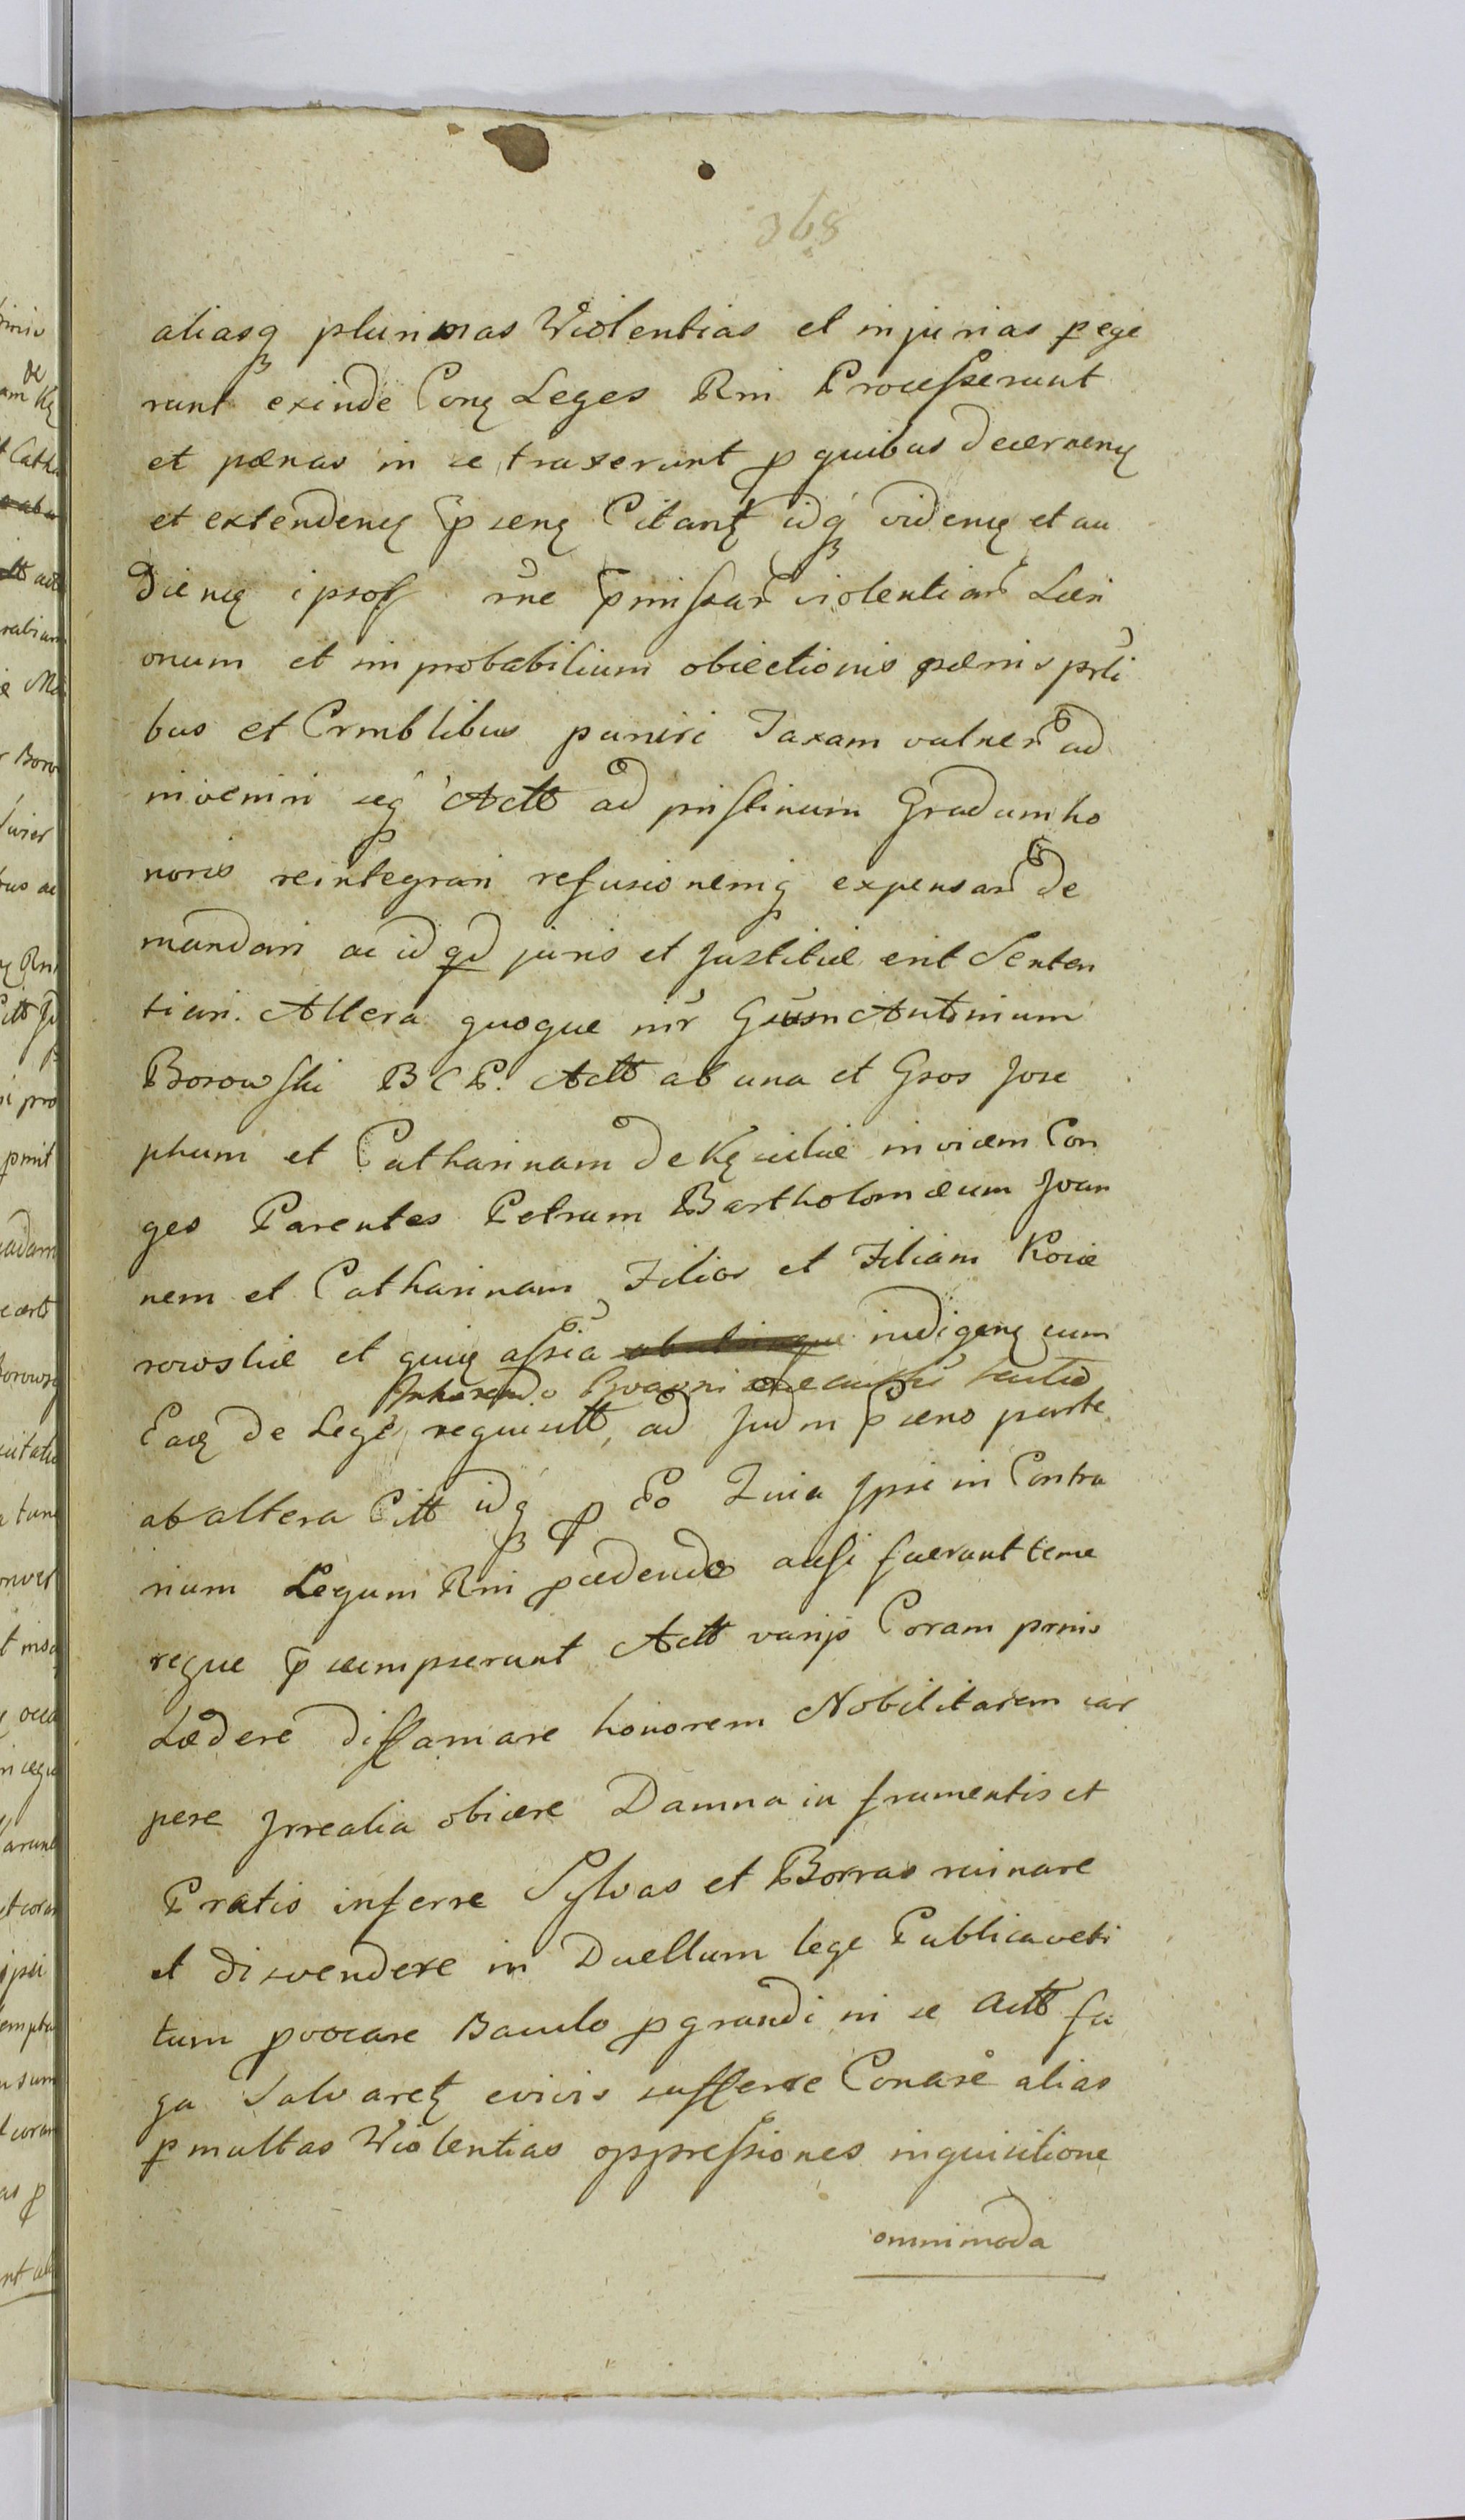 368
aliasq plurimas Violentias et injurias pege
runt exinde Conz Leges Rni Processerunt
et pœnas in se traxerunt p quibus decernenz
et extendenz pseng Citant idq videnz et au
dienz ipsos rne pmissar violentiar Læsi
onum et improbabilium obiectionis pœnis prli
bus et Crmblibus puniri Taxam vulner ad
inveniri seq Actt ad pristinum Gradum ho
noris reintegrari refusionemq expensar de
mandari ac id qd juris et Justitiæ erit Senten
tiari. Altera quoque nir Gsum Antonium
Borowski B C P. Actt ab una et Gsos Jose
phum et Catharinam de invicem Con
ges Parentes Petrum Bartholomæum Joan
nem et Catharinam Filios et Filiam Kosie
rowskie et assia indigenz eum
Inhærendo
Eaz de Lege requisitt, ad Judm pseno parte
ab altera Citt idq p Eo Quia Ipsi in Contra
rium Legum Rni pcedendo ausi fuerunt teme
reque psempserunt Actt varijs Coram prnis
Lædere diffamare honorem Nobilitarem car
pere Irrealia obicere Damna in frumentis et
Pratis inferre Sylvas et Borras ruinare
et disvendere in Duellum lege Publica veti
tum pvocare Baculo pgrandi ni se Actt fu
ga Salvaret evivis sufferre Conare alias
pmultas Violentias oppressiones inquisitione
omnimoda